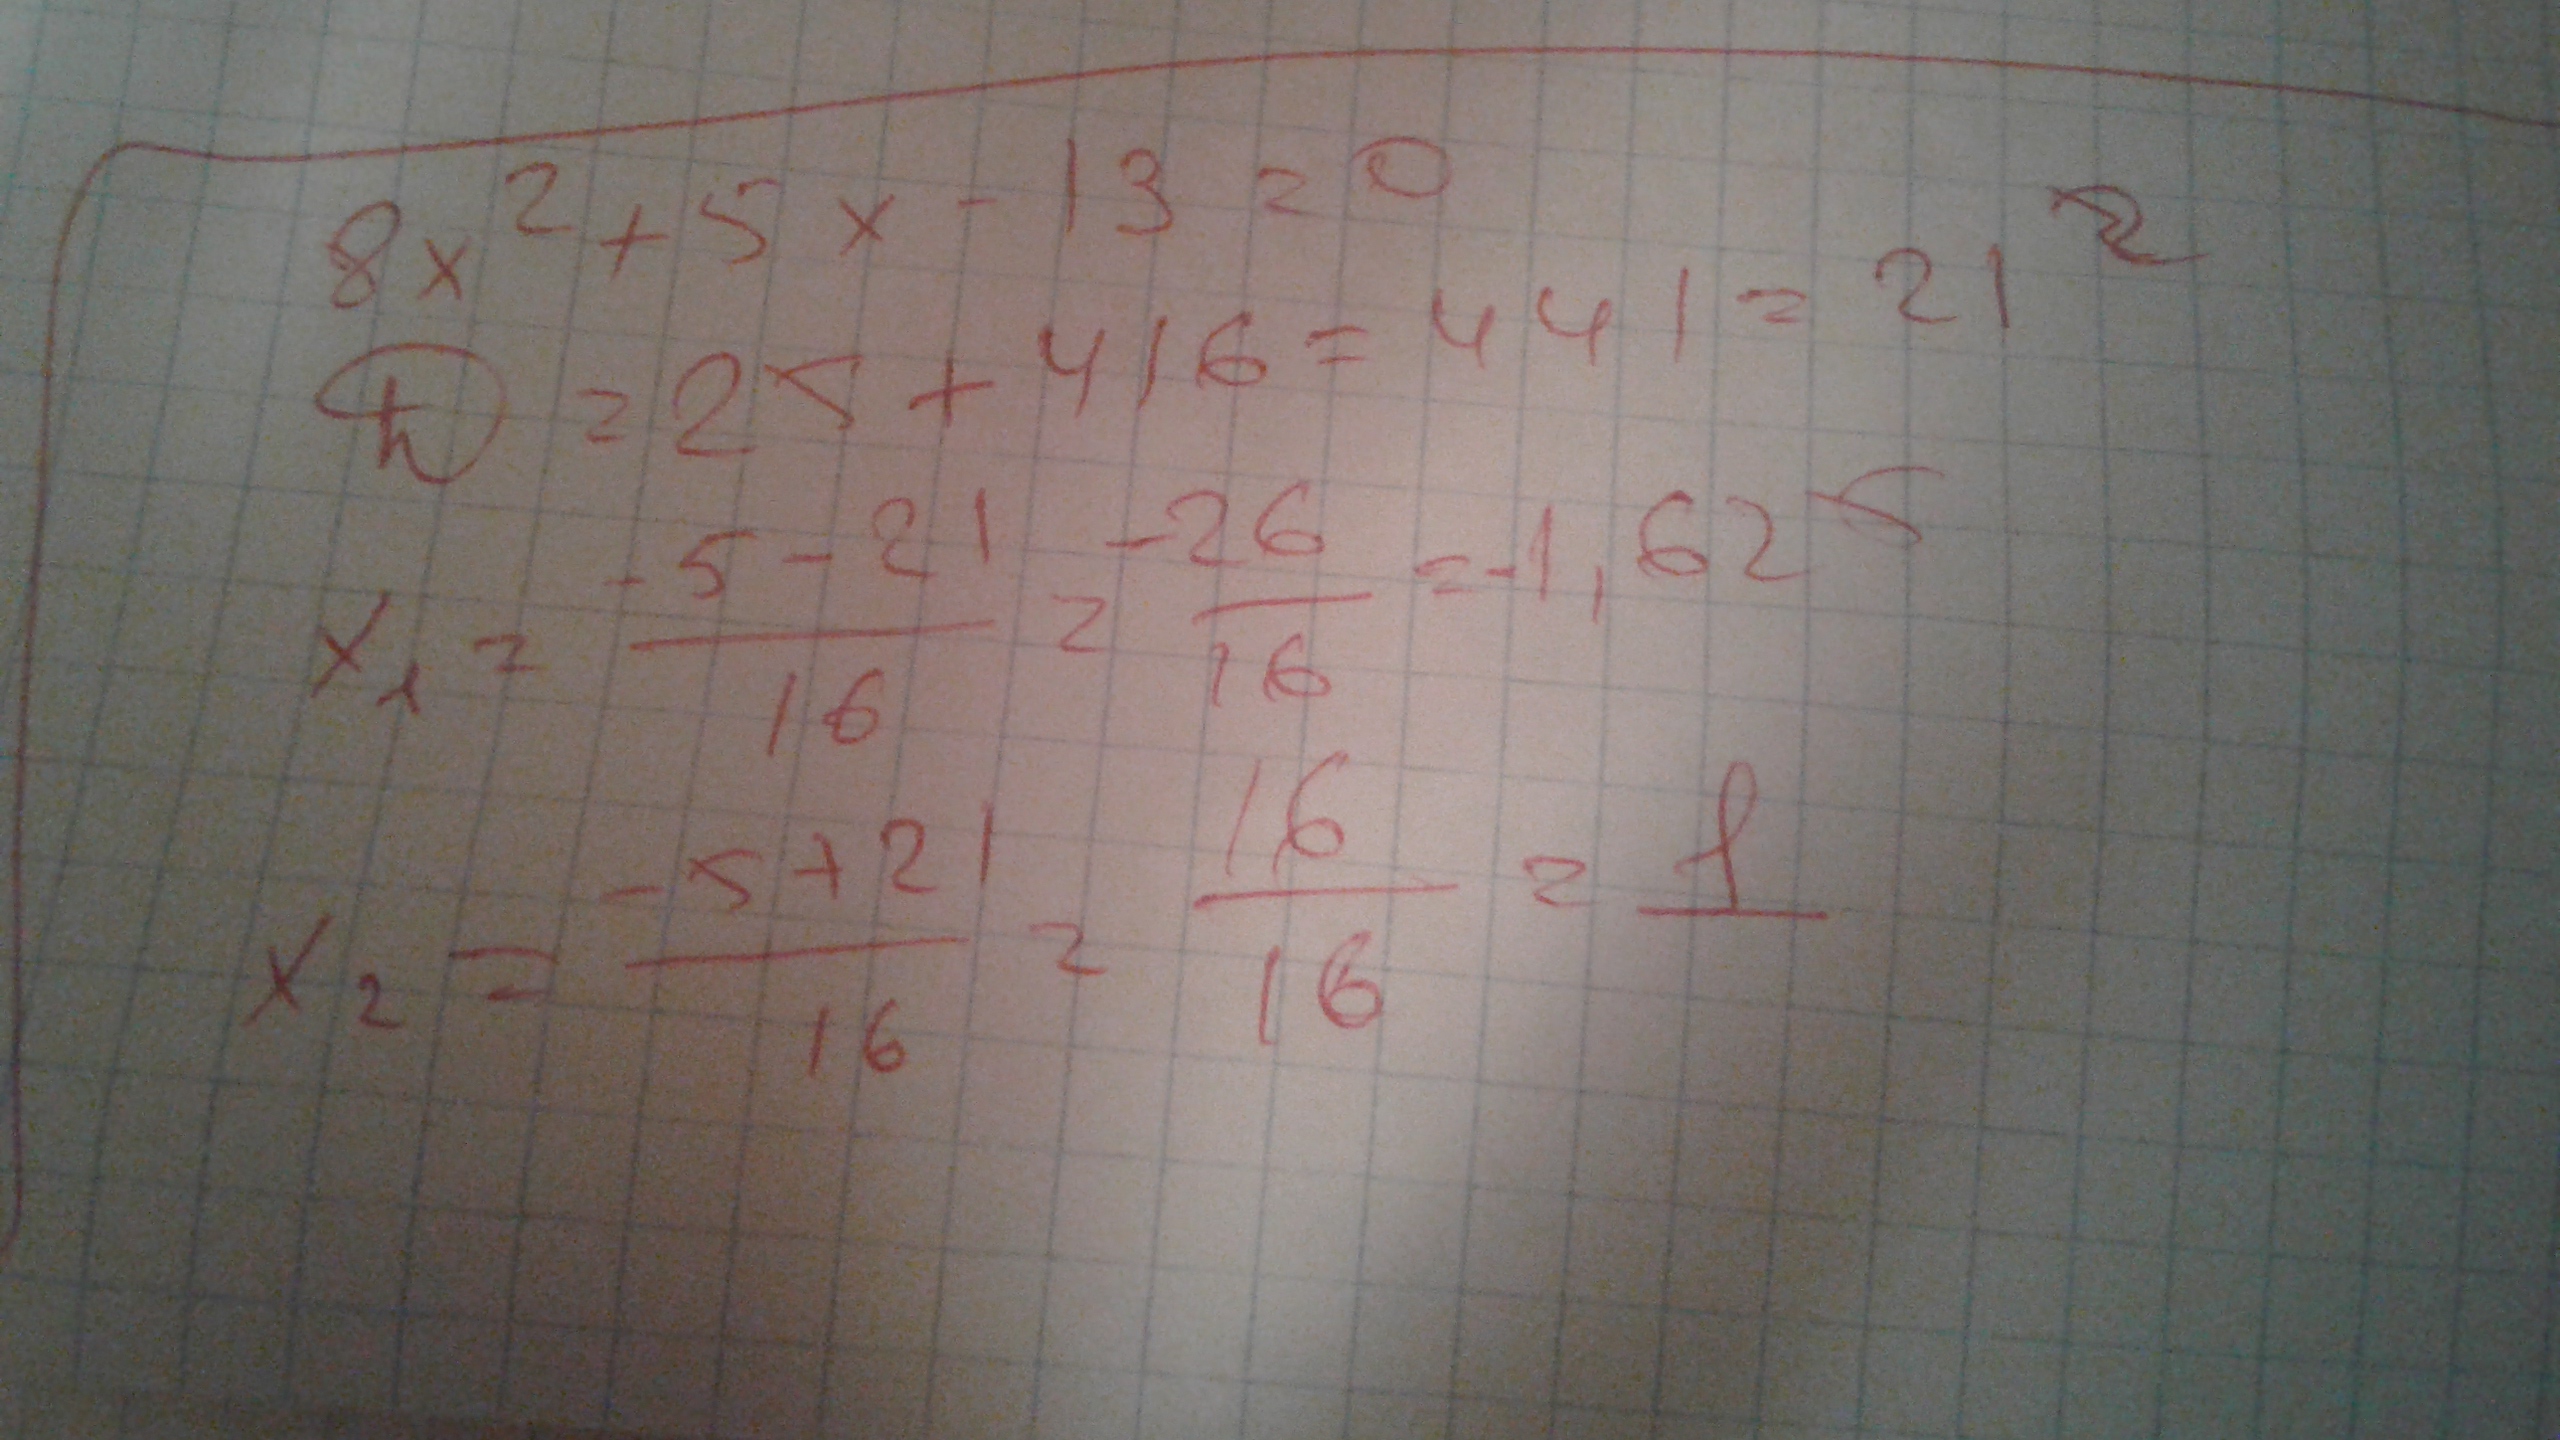 8x² + 5x - 13 = 0
D = 25 + 416 = 441 = 21²
x₁ = (-5 - 21)/16 = -26/16 = -1,625
x₂ = (-5 + 21)/16 = 16/16 = 1